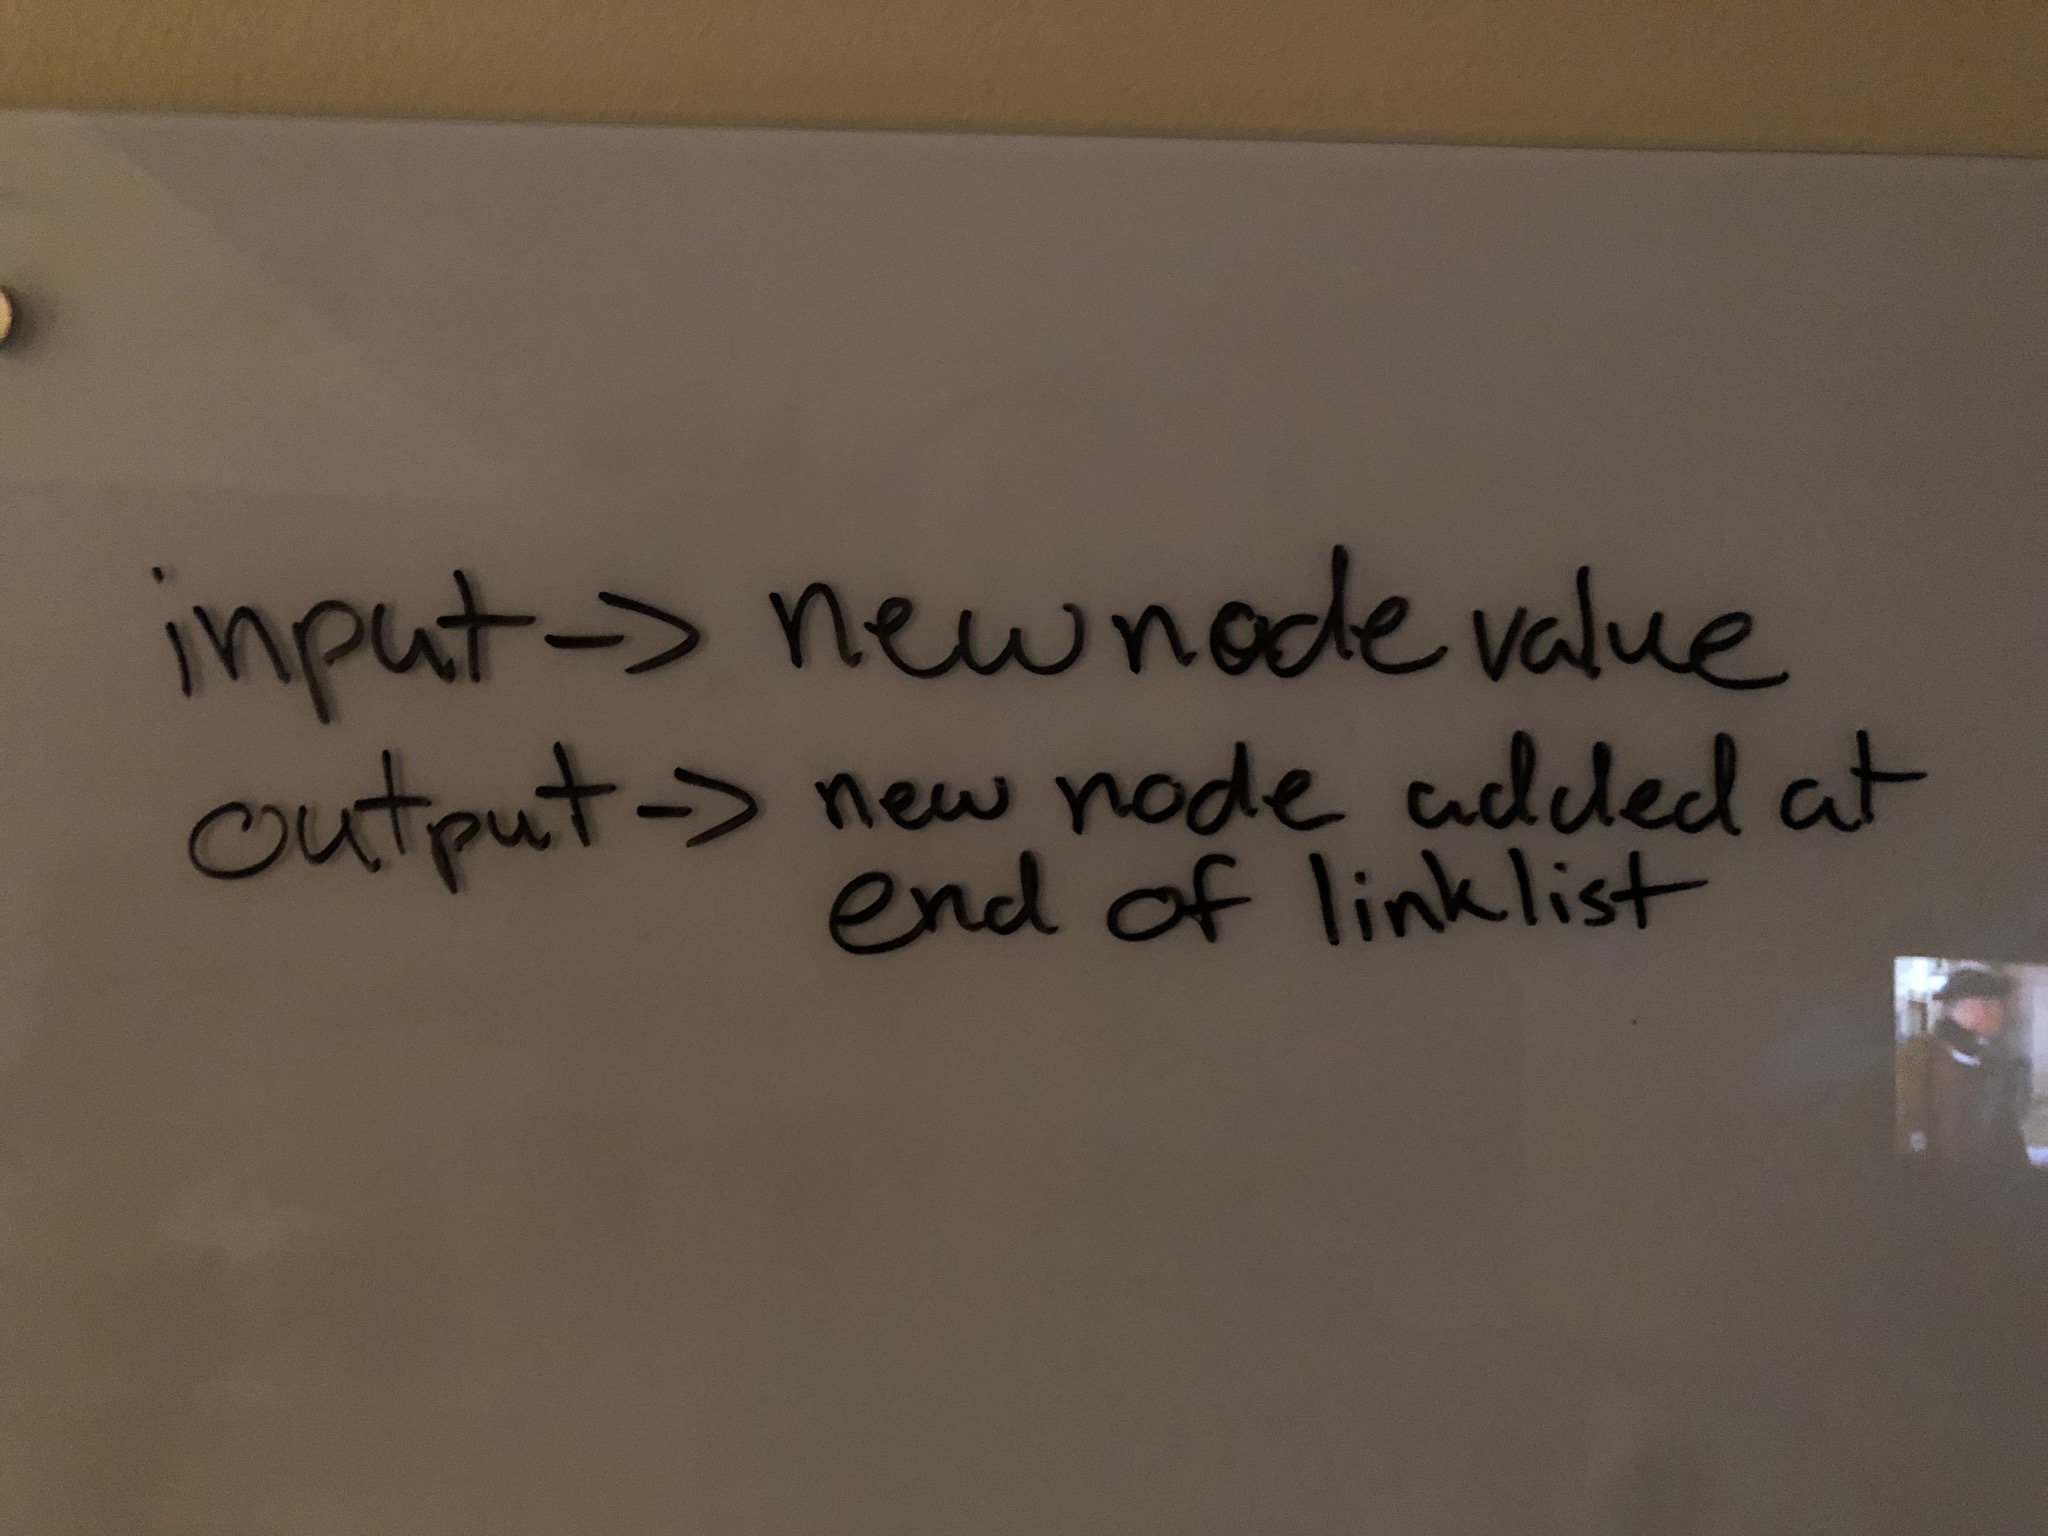 input -> new node value
output -> new node added at
end of link list